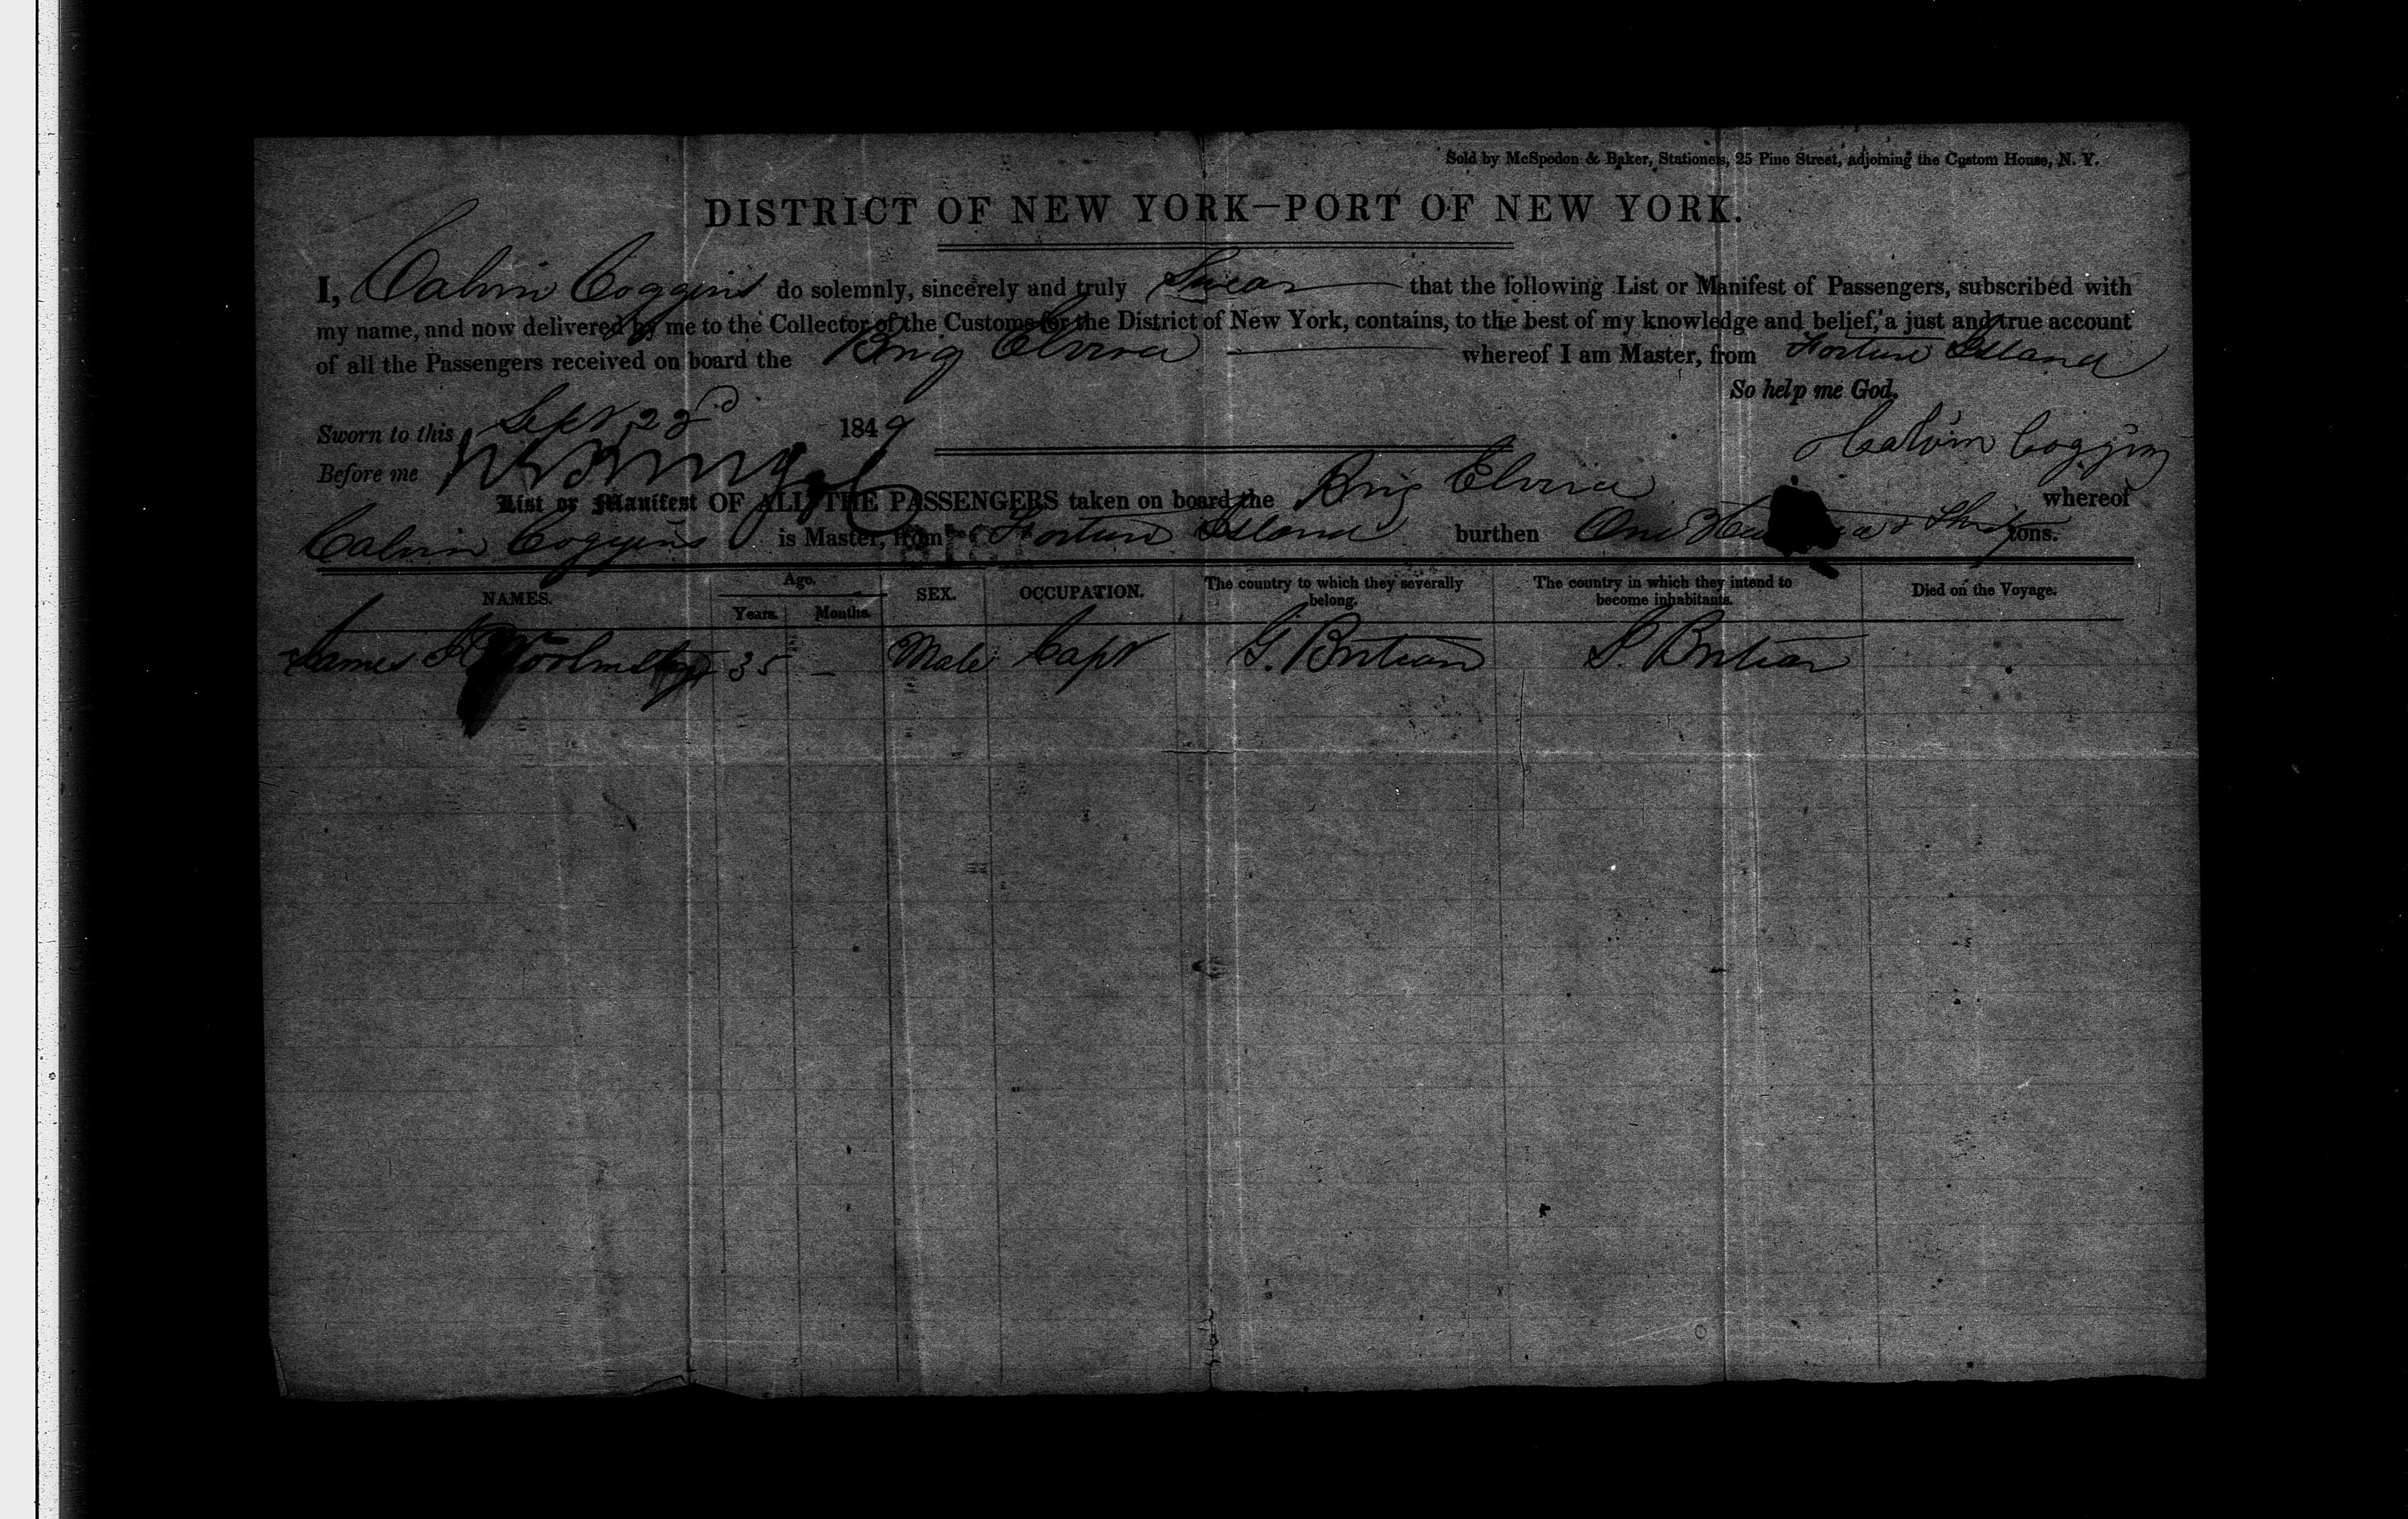 Sold by McSpedon & Baker, Stationers, 25 Pine Street, adjoining the Custom House, N. Y.
DISTRICT OF NEW YORK—PORT OF NEW YORK.
I, Calvin Coggins do solemnly, sincerely and truly Swear that the following List or Manifest of Passengers, subscribed with
my name, and now delivered by me to the Collector of the Customs for the District of New York, contains, to the best of my knowledge and belief, a just and true account
of all the Passengers received on board the Brig Elvira whereof I am Master, from Fortune Island
So help me God.
Sworn to this Sept 22d 1849
Calvin Coggins
Before me
List or Manifest OF ALL THE PASSENGERS taken on board the Brig Elvira whereof
Calvin Coggins is Master, from Fortune Island burthen One tons.
NAMES. Age. Years. Months. SEX. OCCUPATION. The country to which they severally belong. The country in which they intend to become inhabitants. Died on the Voyage.
James 35 — Male Capt G. Britian G. Britian